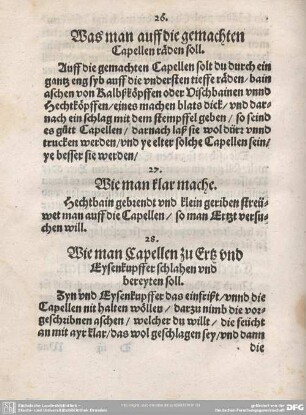 26.
Was man auff die gemachten
Capellen räden soll.
Auff die gemachten Capellen solt du durch ein
gantz eng syb auff die vndersten tieffe räden / bain
aschen von Kalbßköpffen oder Vischbainen vnnd
Hechtköpffen / eines machen blats dick / vnd dar-
nach ein schlag mit dem stempffel geben / so seind
es gůt Capellen / darnach laß sie wol dürr vnnd
trucken werden / vnd ye elter solche Capellen sein /
ye besser sie werden /
27.
Wie man klar mache.
Hechtbain gebrendt vnd klein geriben streü-
wet man auff die Capellen / so man Ertzt versů-
chen will.
28.
Wie man Capellen zu Ertz vnd
Eysenkupffer schlahen vnd
bereyten soll.
Zyn vnd Eysenkupffer das einfrißt / vnnd die
Capellen nit halten wöllen / darzu nimb die vor-
geschribnen aschen / welcher du willt / die feücht
an mit ayr klar / das wol geschlagen sey / vnd dann
die